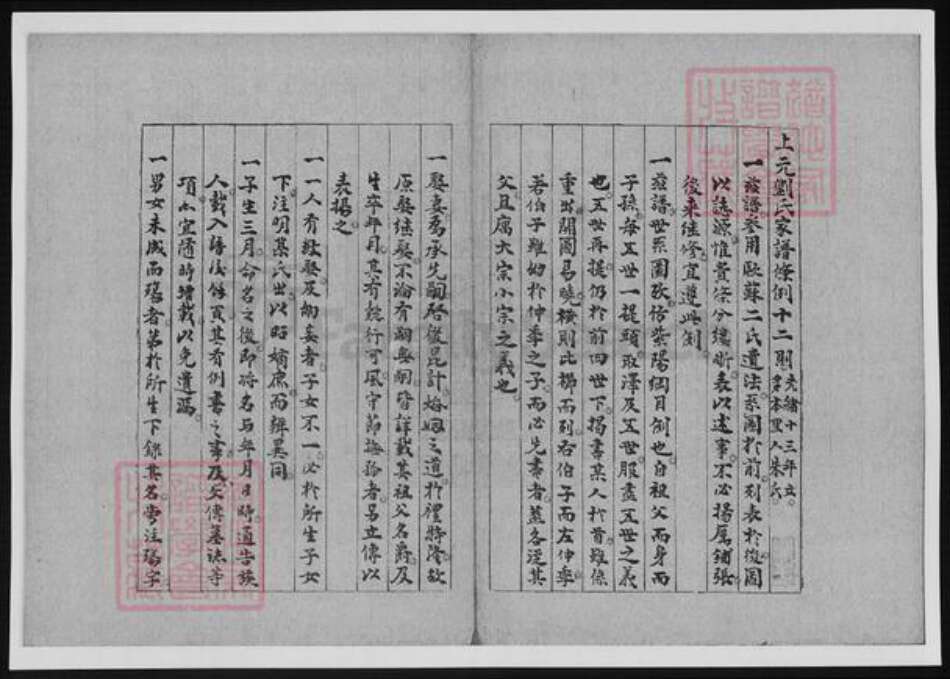 上元劉氏家譜條例十二則 光緒十三年立
一茲譜參用歐蘇二氏遺法系圖於前列表於後圖
以誌源惟貴條分縷晰表以述事不必揚厲鋪張
後來續修宜遵此例
一茲譜世系圖攷仿紫陽綱目例也自祖父而身而
子孫每五世一提頭取澤及五世服盡五世之義
也五世再提仍於前四世下揭書某人於首雖係
重出閱圖易曉橫則比櫛而列右伯子而左仲季
若伯子雖幼於仲季之子而必先書者蓋各從其
父且寓大宗小宗之義也
一娶妻為承先嗣啓後昆計婚姻之道於禮特隆故
原娶繼娶不論有嗣無嗣皆詳載其祖父名爵及
生卒年月其有懿行可風守節苦者另立傳以
表揚之
一一人有數娶及納妾者子女不一必於所生子女
下注明某氏出以昭嫡庶而辨異同
一子生三月命名之後即將名與年月日時通告族
人載入譜後餘頁其有例書之事及父傳墓誌等
項亦宜隨時增載以免遺漏
一男女未成而殤者第於所生下錄其名旁注殤字